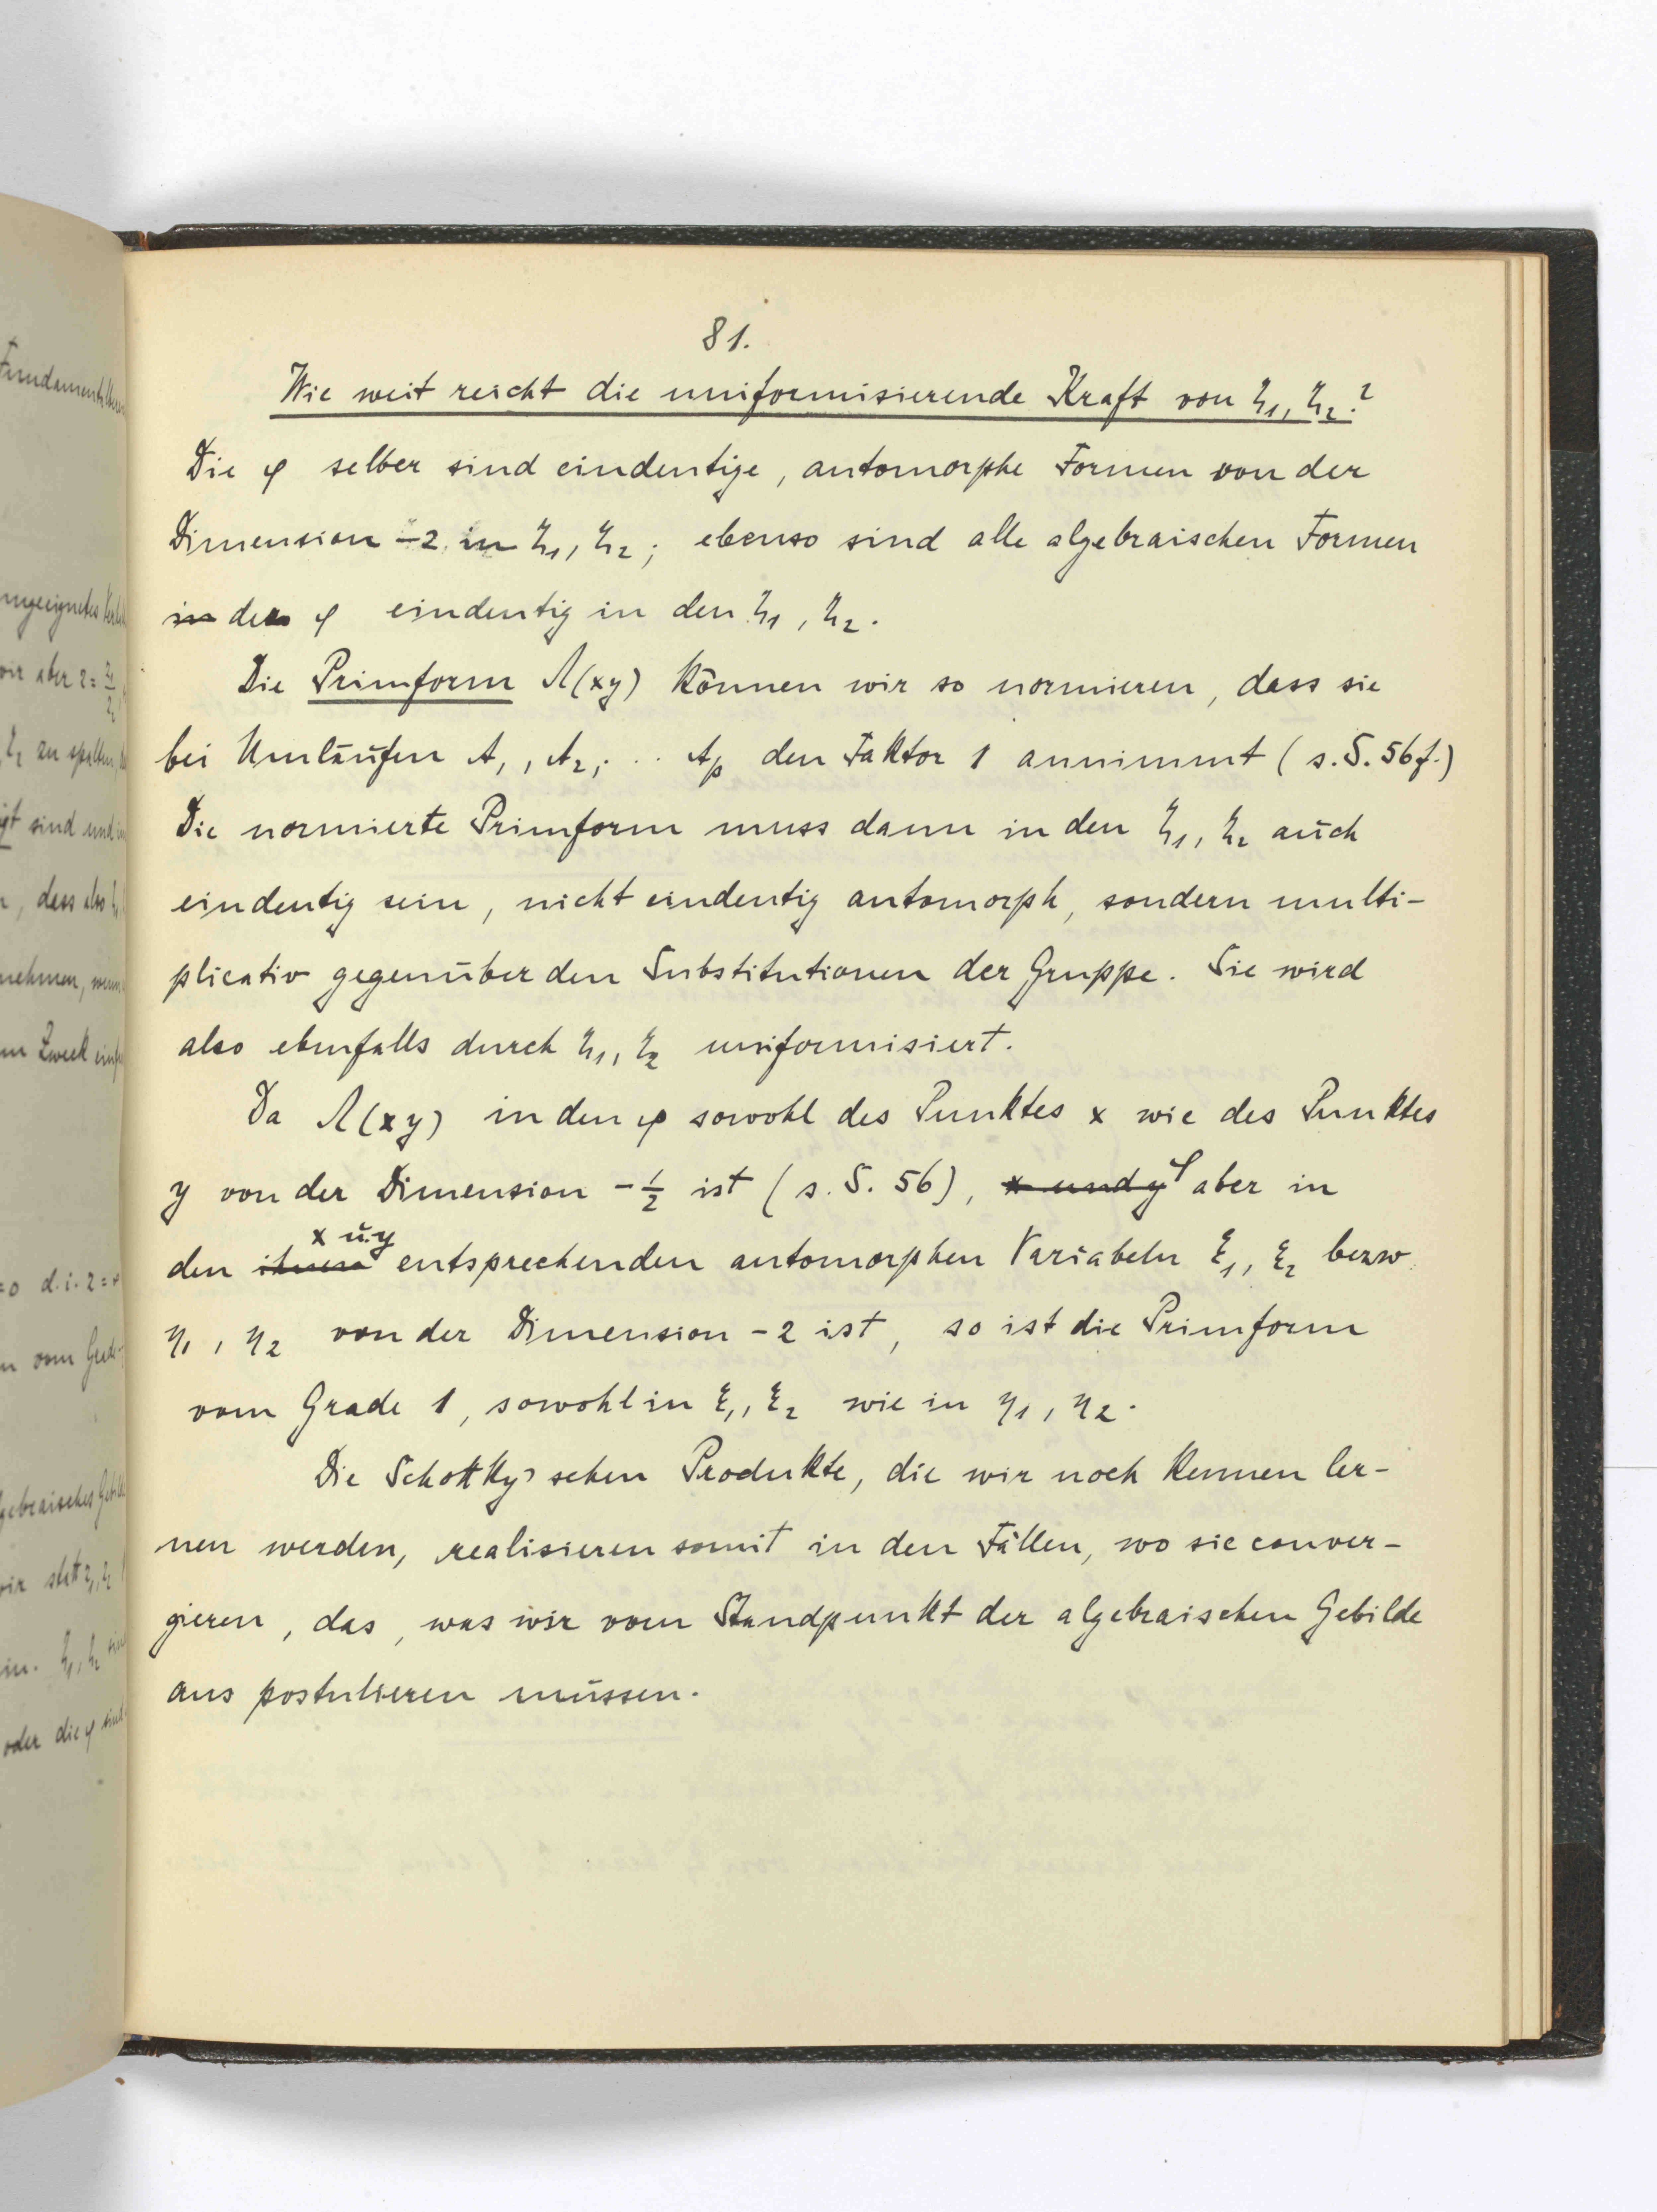 Fundamentalbereich
81.
Wie weit reicht die uniformisierende Kraft von ζ₁, ζ₂?
Die φ selber sind eindeutige, automorphe Formen von der
Dimension -2 in ζ₁, ζ₂; ebenso sind alle algebraischen Formen
in der φ eindeutig in den ζ₁, ζ₂.
Die Primform Λ(xy) können wir so normieren, dass sie
bei Umläufen A₁, A₂, ... Aₚ den Faktor 1 annimmt (s. S. 56f.)
Die normierte Primform muss dann in den ζ₁, ζ₂ auch
eindeutig sein, nicht eindeutig automorph, sondern multi-
plicativ gegenüber den Substitutionen der Gruppe. Sie wird
also ebenfalls durch ζ₁, ζ₂ uniformisiert.
Da Λ(xy) in den φ sowohl des Punktes x wie des Punktes
y von der Dimension -½ ist (s. S. 56), x und y aber in
x u. y
den ihnen entsprechenden automorphen Variabeln ξ₁, ξ₂ bezw.
η₁, η₂ von der Dimension -2 ist, so ist die Primform
vom Grade 1, sowohl in ξ₁, ξ₂ wie in η₁, η₂.
Die Schottky'schen Produkte, die wir noch kennen ler-
nen werden, realisieren somit in den Fällen, wo sie conver-
gieren, das, was wir vom Standpunkt der algebraischen Gebilde
aus postulieren müssen.